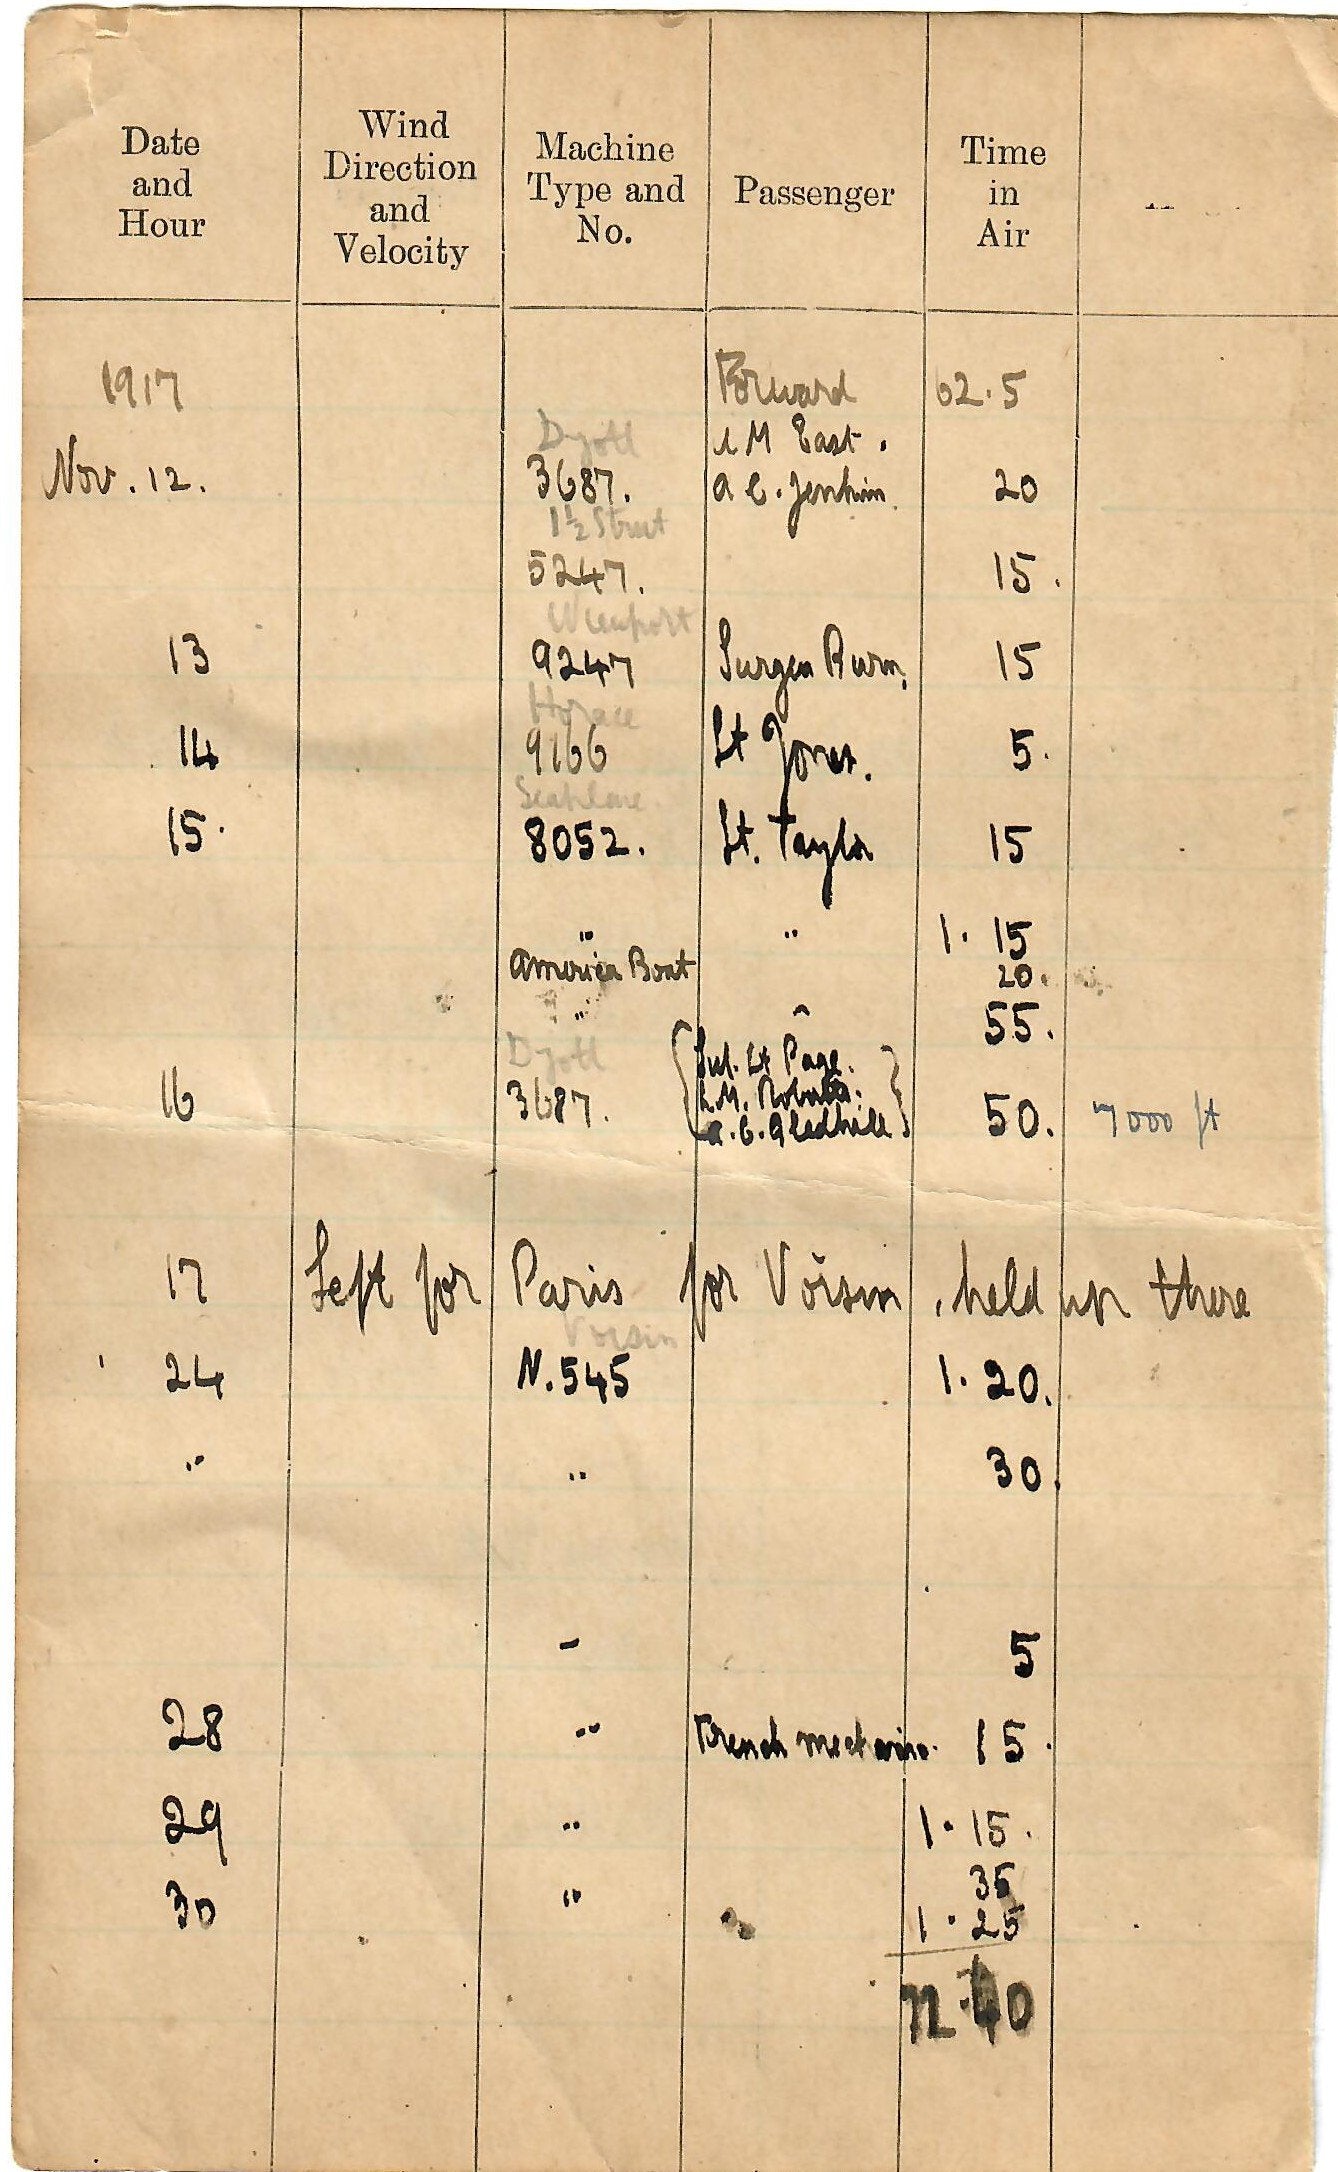 Date and Hour
Wind Direction and Velocity
Machine Type and No.
Passenger
Time in Air
1917 Forward 62.5
Dyott L M East.
Nov. 12. 3687. A C. Jenkin. 20
1½ Strut
5247. 15.
Nieuport
13 9247 15
Horace
14 9166 Lt Jones. 5.
Seaplane
15. 8052. Lt. Taylor 15
" " 1. 15
America Boat 20.
" " 55.
Dyott Sub. Lt Page.
16 3687. L.M. Roberts. 50. 7000 ft
A.C. Gledhill
17 Left for Paris for Voisin, held up there
Voisin
24 N.545 1. 20.
" " 30.
- 5
28 " French mechanic. 15.
29 " 1. 15.
35
30 " 1. 25
72 40